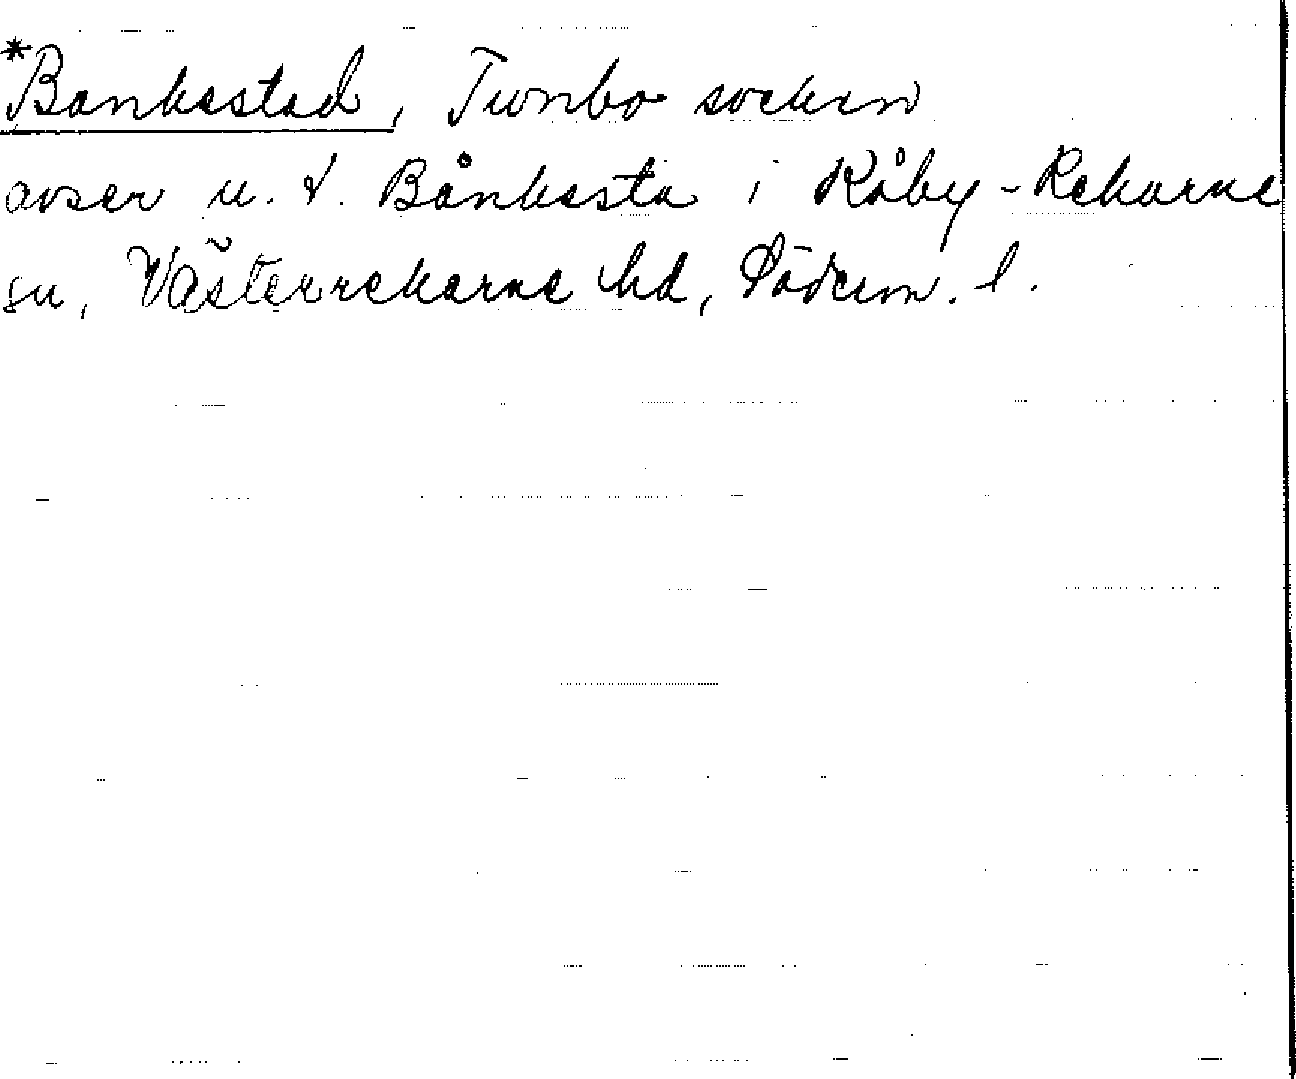 *Bankestad, Tumbo socken
avser u. t. Bånkesta i Råby-Rekarne
sn, Västerrekarne hd, Söderm. l.